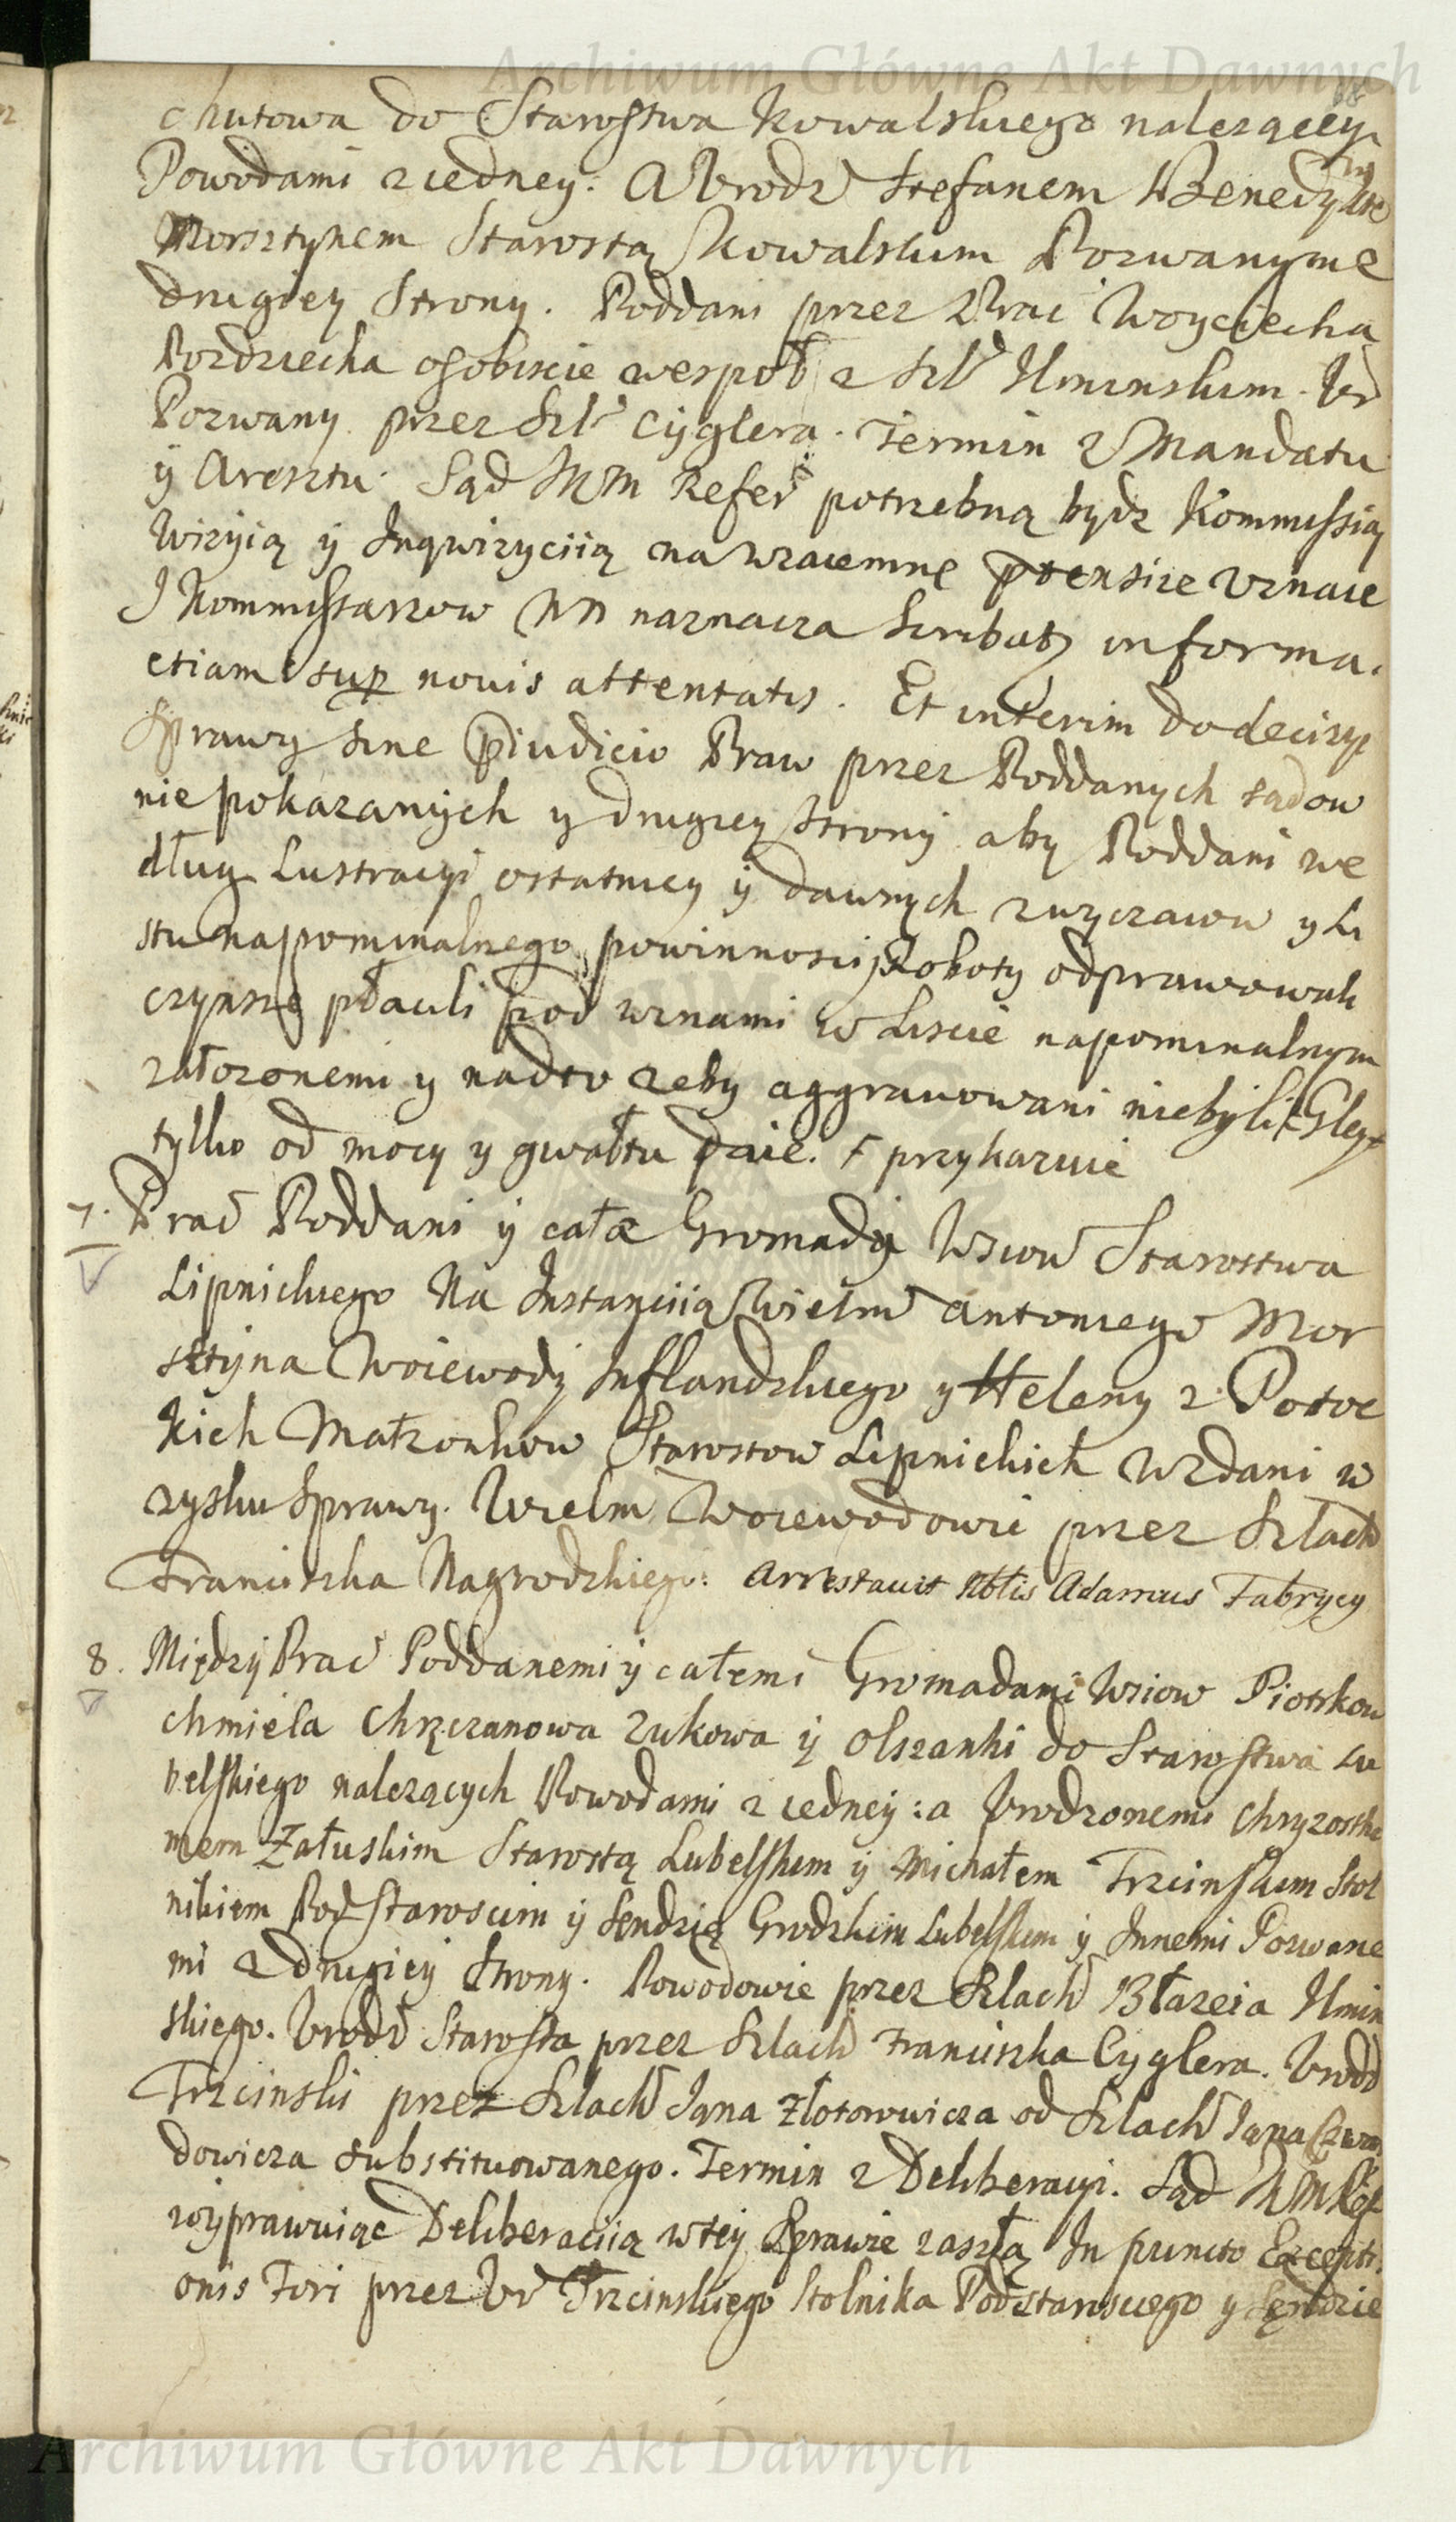 Archiwum Główne Akt Dawnych
68
chutowa do Starostwa Kowalskiego nalezącey
Powodami z iedney: A Vrodz Stefanem Benedykte
Morsztynem Starostą Kowalskim Pozwanym z
drugiey Strony. Poddani przez Prac Woyciecha
Pozdziecha osobiscie wespoł z Szl Uminskim. Vr
Pozwany przez Szl Cyglera. Termin z Mandatu
y Aresztu. Sąd NM Refer potrzebną bydz Kommissią
Wizyią y Inqwizyciią na wzaiemne ptensie vznaie
I Kommissarzow NN naznacza Scribatz informa.
etiam sup novis attentatis. Et interim do decizyi
Sprawy sine piudicio Praw przez Poddanych sądow
nie pokazanych y drugiey strony aby Poddani we
dług Lustracyi ostatniey y dawnych zwyczaiow y Li
stu napominalnego powinnosci Roboty odprawowali
czynsze płacili pod winami w Liscie napominalnym
załozonemi y nadto zeby aggrawowani niebyli Gleyt
tylko od mocy y gwałtu daie. przykazuie
7. Prac Poddani y całe Gromady Wsiow Starostwa
Lipnickiego Na Instanciią Wielm Antoniego Mor
sztyna Woiewody Inflandzkiego y Heleny z Potoc
kich Małzonkow Starostow Lipnickich Wzdani w
zysku Sprawy. Wielm Woiewodowi przez Szlach
Franciszka Nagrodzkiego: Arrestavit Nblis Adamus Fabrycy
8. Między Prac Poddanemi y całemi Gromadami Wsiow Piotrkow
Chmiela Chrzczanowa Zukowa y Olszanki do Starostwa Lu
belskiego nalezących Powodami z iedney: a Vrodzonemi Chryzosto
mem Załuskim Starostą Lubelskim y Michałem Trzcinskim Stol
nikiem Podstaroscim y Sendzią Grodzkim Lubelskim y Innemi Pozwane
mi z drugiey Strony. Powodowie przez Szlach Błazeia Umin
skiego. Vrodz Starosta przez Szlach Franciszka Cyglera. Vrodz
Trzcinski przez Szlach Jana Złotowicza od Szlach Jana
dowicza substituowanego. Termin z Deliberacyi. Sąd NM
wyprawuiąc Deliberaciią w tey Sprawie zaszłą In puncto Excepti
onis Fori przez Vr Trzcinskiego Stolnika Podstarosciego y Sędzie
Archiwum Główne Akt Dawnych